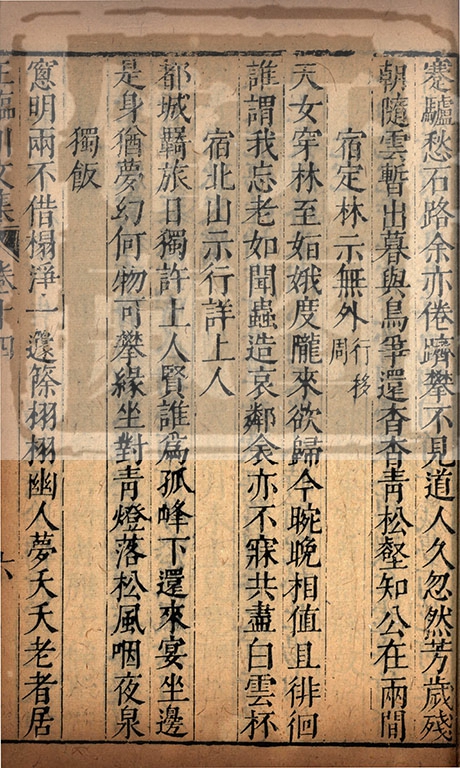 蹇驢愁石路余亦倦躋攀不見道人久忽然芳歲殘
朝隨雲暫出暮與鳥爭還杳杳青松壑知公在兩間
宿定林示無外行移周
天女穿林至姮娥度隴來欲歸今晼晚相值且徘徊
誰謂我忘老如聞蟲造哀鄰衾亦不寐共盡白雲杯
宿北山示行詳上人
都城羇旅日獨許上人賢誰爲孤峰下還來宴坐邊
是身猶夢幻何物可攀緣坐對青燈落松風咽夜泉
獨飯
窻明兩不借榻淨一籧篨栩栩幽人夢夭夭老者居
王臨川文集 卷十四